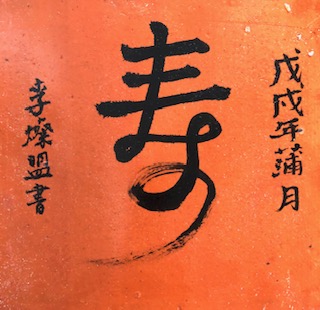 戊戌年蒲月
寿
李燦盟書